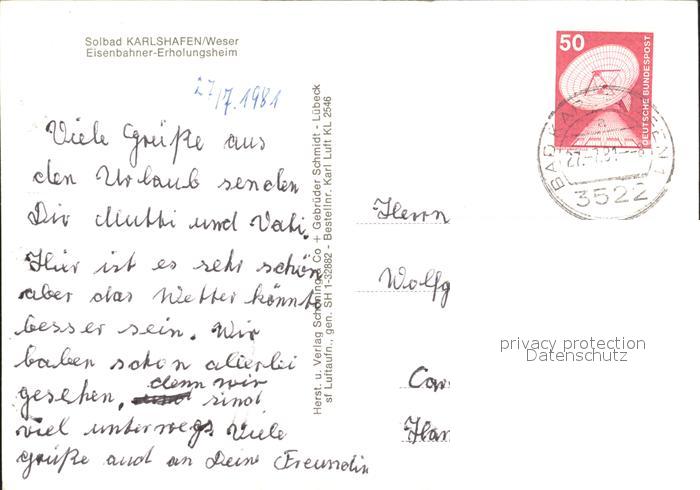 Solbad KARLSHAFEN/Weser
Eisenbahner-Erholungsheim
27/7. 1981
Viele Grüße aus
den Urlaub senden
Dir Mutti und Vati.
Hier ist es sehr schön
aber das Wetter könnte
besser sein. Wir
haben schon allerlei
gesehen, denn wir sind
viel unterwegs Viele
grüße auch an Deine Freundin
Herst. u. Verlag Schöning & Co + Gebrüder Schmidt - Lübeck
sf Luftaufn., gen. SH 1-32882 - Bestellnr. Karl Luft KL 2546
50
DEUTSCHE BUNDESPOST
BAD KARLSHAFEN 1
a
27.-7.81
3522
Herrn
Wolfg
Car
Han
privacy protection
Datenschutz